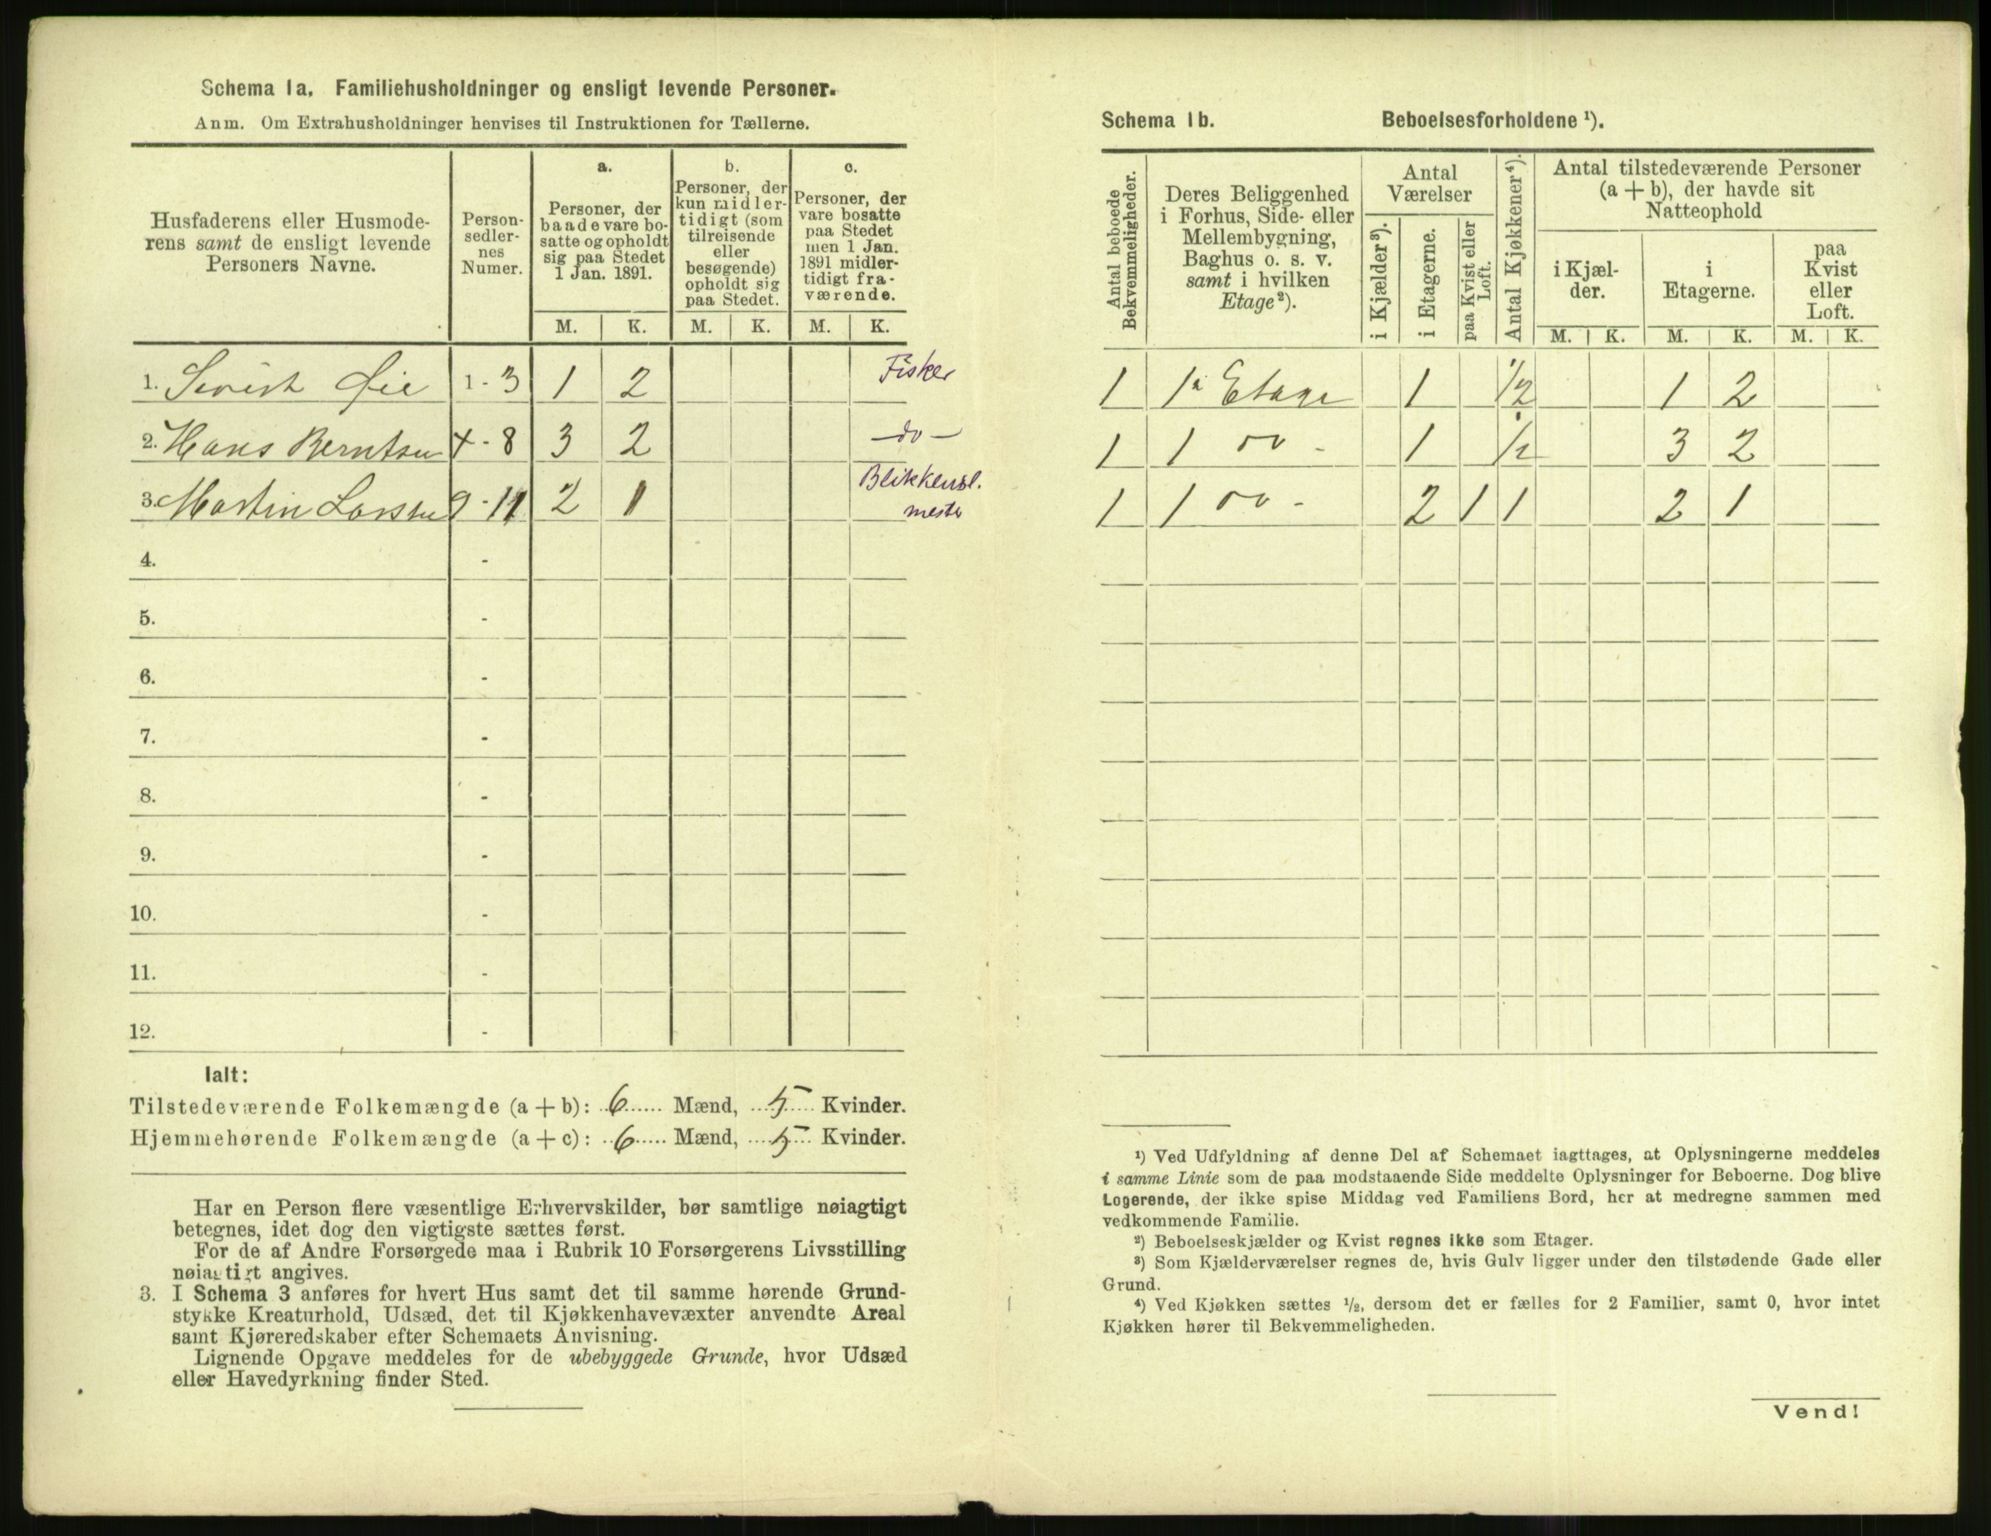 Schema 1a. Familiehusholdninger og ensligt levende Personer.
Anm. Om Extrahusholdninger henvises til Instruktionen for Tællerne.
Husfaderens eller Husmode-
rens samt de ensligt levende
Personers Navne.
Person-
sedler-
nes
Numer.
a.
Personer, der
baade vare bo-
satte og opholdt
sig paa Stedet
1 Jan. 1891.
b.
Personer, der
kun midler-
tidigt (som
tilreisende
eller
besøgende)
opholdt sig
paa Stedet.
c.
Personer, der
vare bosatte
paa Stedet
men 1 Jan.
1891 midler-
tidigt fra-
værende.
M. K. M. K. M. K.
1. Øie 1 - 3 1 2 Fisker
2. Hans Berntsen 4 - 8 3 2 — do —
3. Martin Larssen 9 - 11 2 1 Blikkensl.
mester
4. -
5. -
6. -
7. -
8. -
9. -
10. -
11. -
12. -
Ialt:
Tilstedeværende Folkemængde (a + b): 6 Mænd, 5 Kvinder.
Hjemmehørende Folkemængde (a + c): 6 Mænd, 5 Kvinder.
Har en Person flere væsentlige Erhvervskilder, bør samtlige nøiagtigt
betegnes, idet dog den vigtigste sættes først.
For de af Andre Forsørgede maa i Rubrik 10 Forsørgerens Livsstilling
nøiagtigt angives.
3. I Schema 3 anføres for hvert Hus samt det til samme hørende Grund-
stykke Kreaturhold, Udsæd, det til Kjøkkenhavevæxter anvendte Areal
samt Kjøreredskaber efter Schemaets Anvisning.
Lignende Opgave meddeles for de ubebyggede Grunde, hvor Udsæd
eller Havedyrkning finder Sted.
Schema 1b. Beboelsesforholdene ¹).
Antal beboede
Bekvemmeligheder.
Deres Beliggenhed
i Forhus, Side- eller
Mellembygning,
Baghus o. s. v.
samt i hvilken
Etage²).
Antal
Værelser
i Kjælder³).
i Etagerne.
paa Kvist eller
Loft.
Antal Kjøkkener⁴).
Antal tilstedeværende Personer
(a + b), der havde sit
Natteophold
i Kjæl-
der.
i
Etagerne.
paa
Kvist
eller
Loft.
M. K. M. K. M. K.
1 1ʳ Etage 1 1/2 1 2
1 1 do - 1 1/2 3 2
1 1 do - 2 1 1 2 1
¹) Ved Udfyldning af denne Del af Schemaet iagttages, at Oplysningerne meddeles
i samme Linie som de paa modstaaende Side meddelte Oplysninger for Beboerne. Dog blive
Logerende, der ikke spise Middag ved Familiens Bord, her at medregne sammen med
vedkommende Familie.
²) Beboelseskjælder og Kvist regnes ikke som Etager.
³) Som Kjælderværelser regnes de, hvis Gulv ligger under den tilstødende Gade eller
Grund.
⁴) Ved Kjøkken sættes ½, dersom det er fælles for 2 Familier, samt 0, hvor intet
Kjøkken hører til Bekvemmeligheden.
Vend!